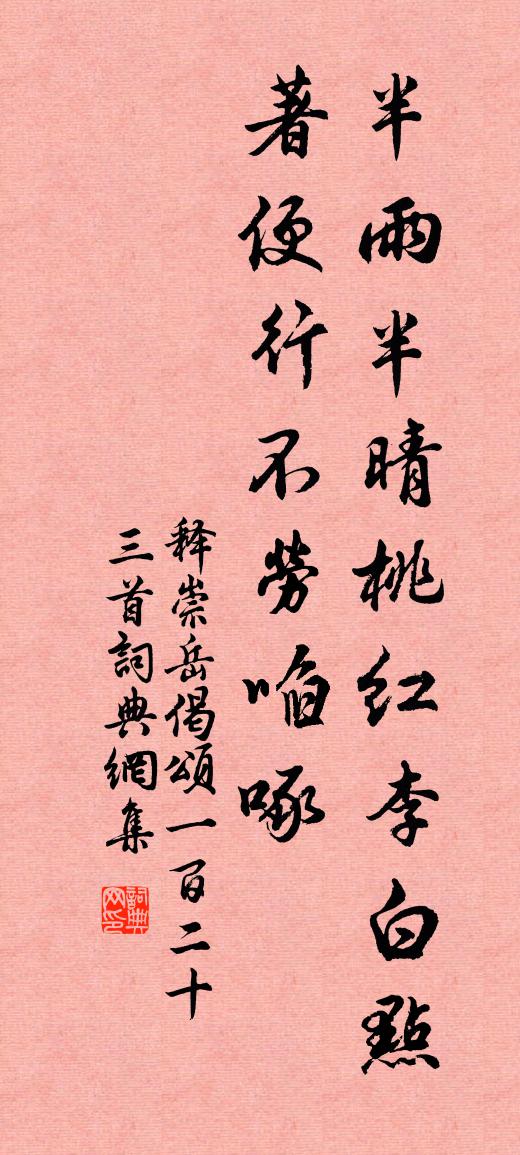 半雨半晴桃紅李白點
著便行不勞啗啄
释崇岳偈頌一百二十
三首詞典網集
詞典
网印